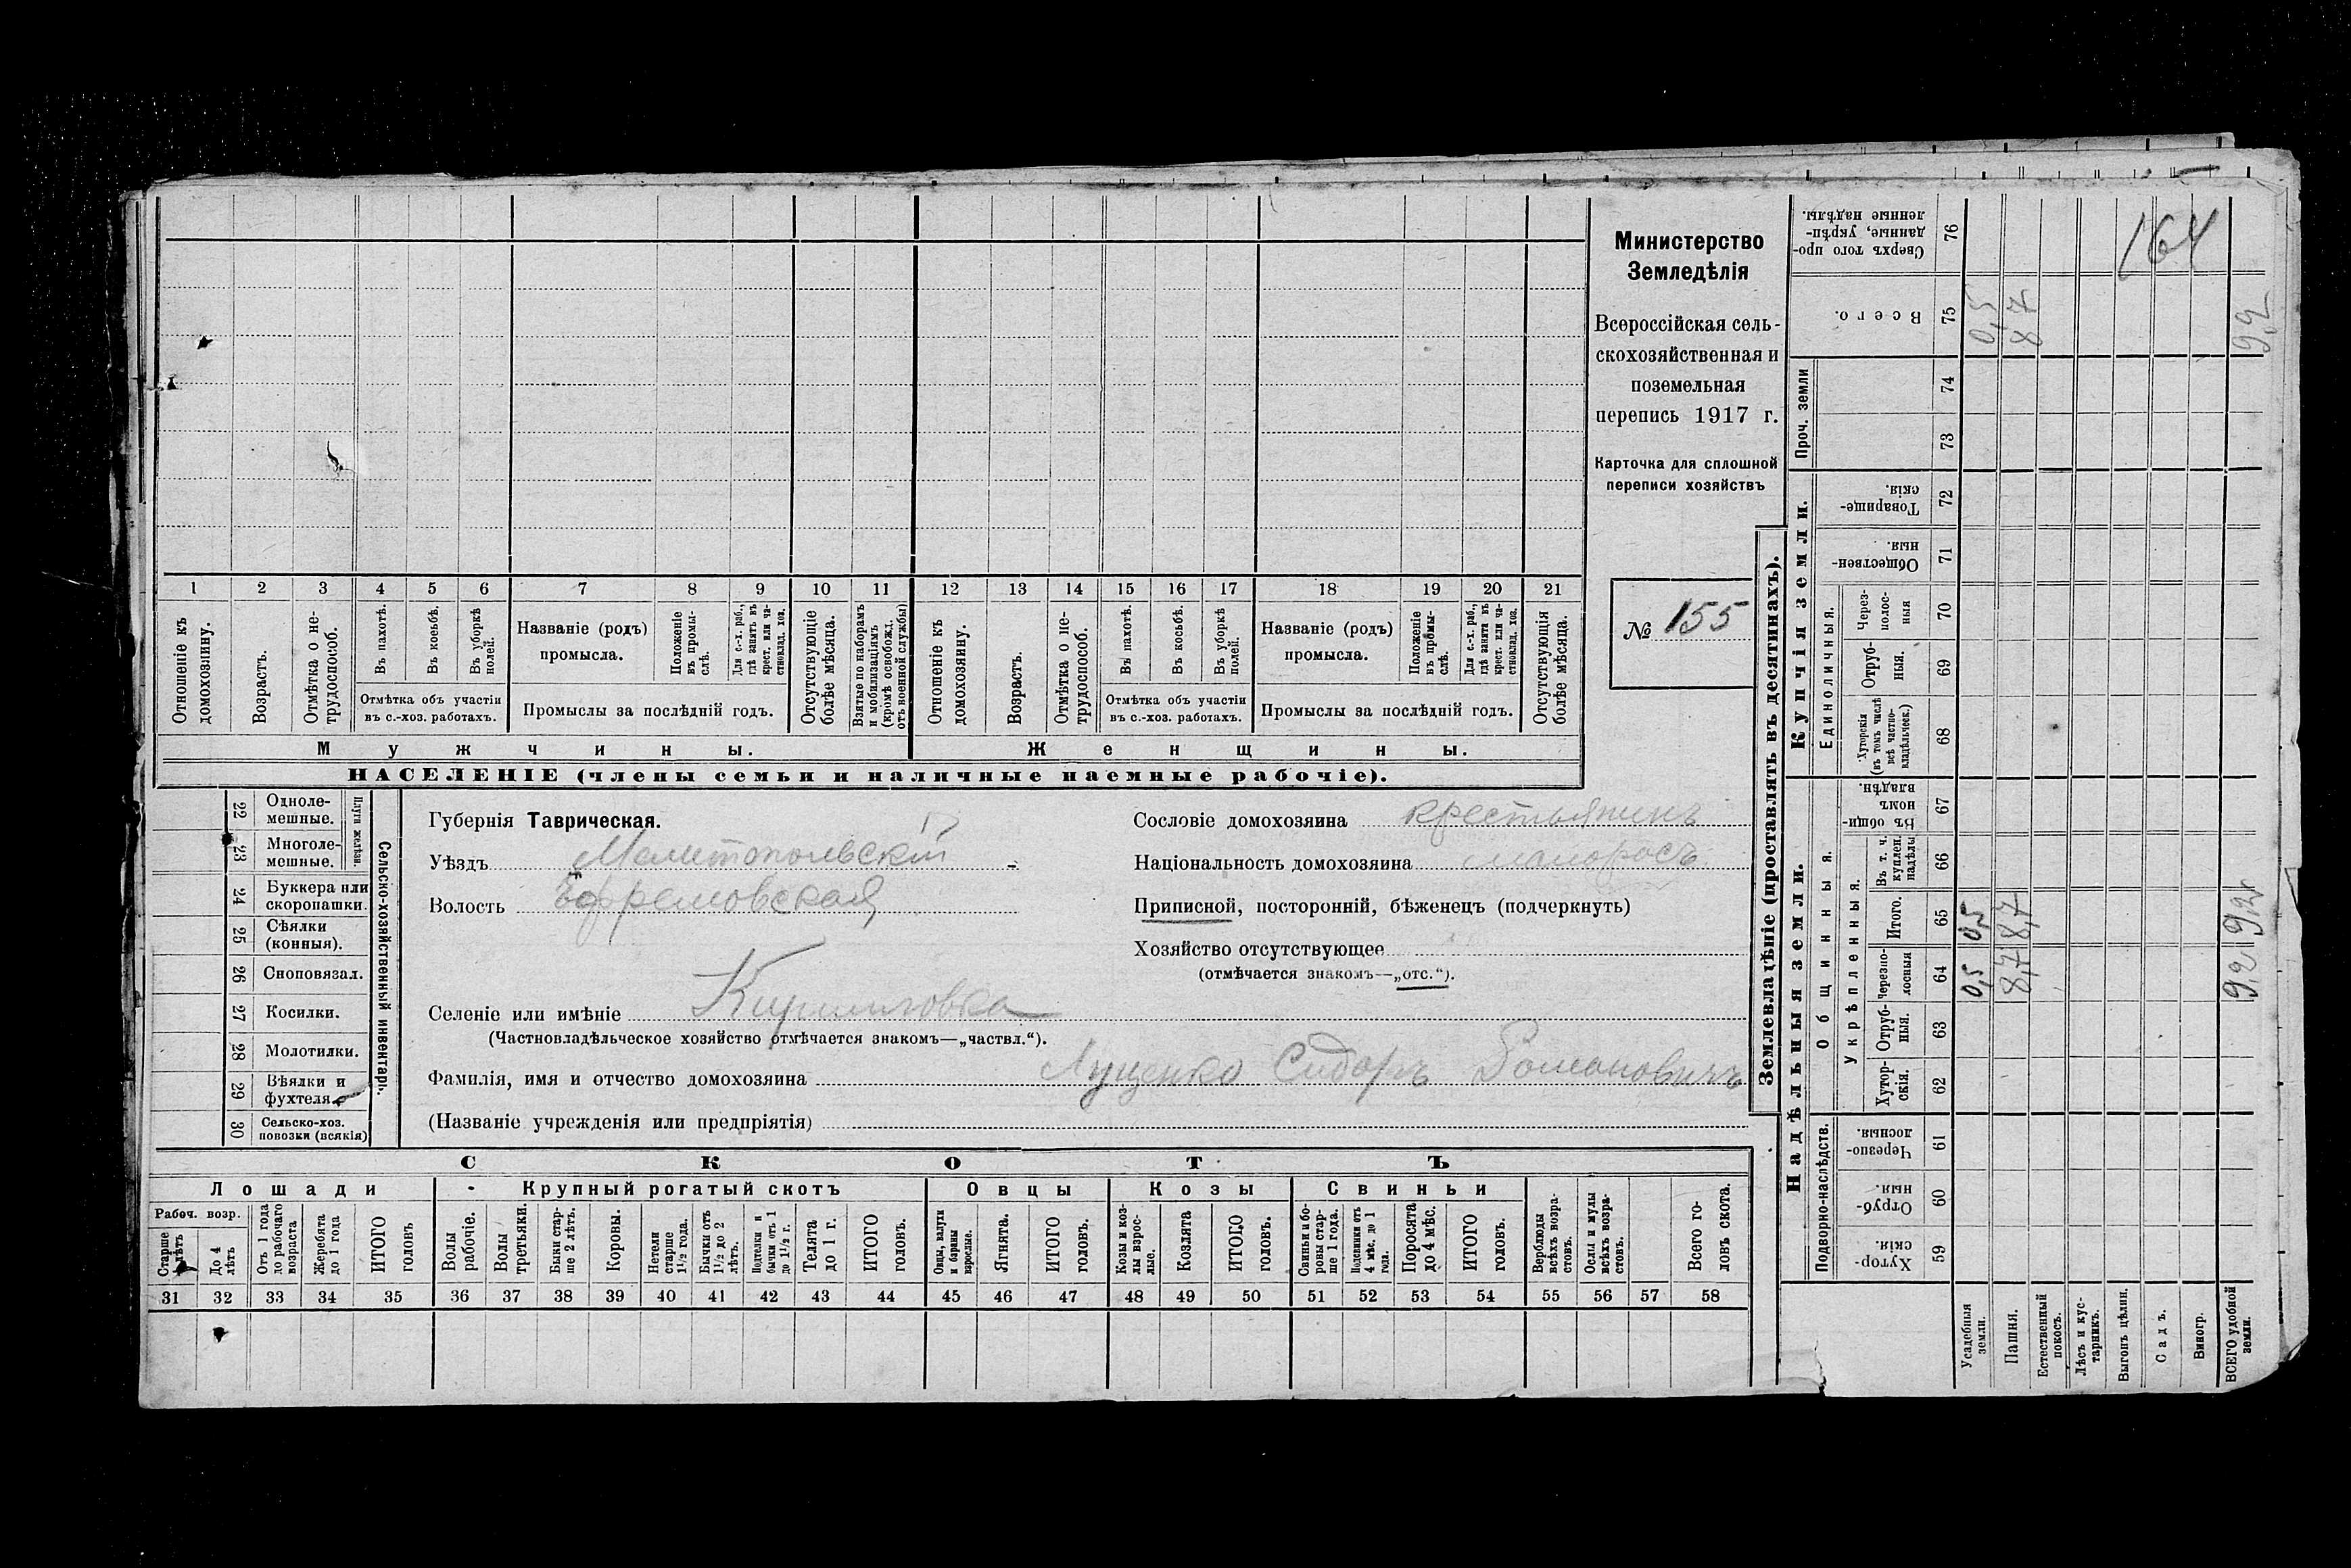 Министерство
Земледѣлія
Всероссійская сель-
скохозяйственная и
поземельная
перепись 1917 г.
Карточка для сплошной
переписи хозяйствъ
№ 155
164
1 2 3 4 5 6 7 8 9 10 11 12 13 14 15 16 17 18 19 20 21
Отношеніе къ домохозяину.
Возрастъ.
Отмѣтка о не-
трудоспособ.
Въ пахотѣ.
Въ косьбѣ.
Въ уборкѣ
полей.
Отмѣтка объ участіи
въ с.-хоз. работахъ.
Названіе (родъ)
промысла.
Положеніе
въ промы-
слѣ.
Для с.-х. раб.,
гдѣ занятъ въ
крест. или ча-
стновлад. хоз.
Промыслы за послѣдній годъ.
Отсутствующіе
болѣе мѣсяца.
Взятые по наборамъ
и мобилизаціямъ
(кромѣ освобожд.
отъ военной службы)
Отношеніе къ
домохозяину.
Возрастъ.
Отмѣтка о не-
трудоспособ.
Въ пахотѣ.
Въ косьбѣ.
Въ уборкѣ
полей.
Отмѣтка объ участіи
въ с.-хоз. работахъ.
Названіе (родъ)
промысла.
Положеніе
въ промы-
слѣ.
Для с.-х. раб.,
гдѣ занята въ
крест. или ча-
стновлад. хоз.
Промыслы за послѣдній годъ.
Отсутствующія
болѣе мѣсяца.
Мужчины.
Женщины.
НАСЕЛЕНІЕ (члены семьи и наличные наемные рабочіе).
22 Одноле-
мешные.
23 Многоле-
мешные.
Плуги желѣзн.
24 Буккера или
скоропашки.
25 Сѣялки
(конныя).
26 Сноповязал.
27 Косилки.
28 Молотилки.
29 Вѣялки и
фухтеля.
30 Сельско-хоз.
повозки (всякія)
Сельско-хозяйственный инвентарь.
Губернія Таврическая.
Уѣздъ Мелитопольскій
Волость Ефремовская
Сословіе домохозяина крестьянинъ
Національность домохозяина малоросъ
Приписной, посторонній, бѣженецъ (подчеркнуть)
Хозяйство отсутствующее
(отмѣчается знакомъ—„отс.“).
Селеніе или имѣніе Кирилловка
(Частновладѣльческое хозяйство отмѣчается знакомъ—„частвл.“).
Фамилія, имя и отчество домохозяина Луценко Сидоръ Романовичъ
(Названіе учрежденія или предпріятія)
СКОТЪ
Лошади
Крупный рогатый скотъ
Овцы
Козы
Свиньи
Рабоч. возр.
Старше
лѣтъ
До 4
лѣтъ
Отъ 1 года
до рабочаго
возраста
Жеребята
до 1 года
ИТОГО
головъ
Волы
рабочіе.
Волы
третьяки.
Быки стар-
ше 2 лѣтъ.
Коровы.
Нетели
старше
1½ года.
Бычки отъ
1½ до 2
лѣтъ.
бычки отъ 1
до 1½ г.
Телята
до 1 г.
ИТОГО
головъ.
Овцы, валухи
и бараны
взрослые.
Ягнята.
ИТОГО
головъ.
Козы и коз-
лы взрос-
лые.
Козлята
ИТОГО
головъ.
Свиньи и бо-
ровы стар-
ше 1 года.
Подсвинки отъ
4 мѣс. до 1
года.
Поросята
до 4 мѣс.
ИТОГО
головъ.
Верблюды
всѣхъ возра-
стовъ.
Ослы и мулы
всѣхъ возра-
стовъ.
Всего го-
ловъ скота.
31 32 33 34 35 36 37 38 39 40 41 42 43 44 45 46 47 48 49 50 51 52 53 54 55 56 57 58
Землевладѣніе (проставлять въ десятинахъ).
Надѣльныя земли.
Купчія земли.
Проч. земли
Подворно-наслѣдств.
Общинныя.
Укрѣпленныя.
Единоличныя.
Хутор-
скія. 59
Отруб-
ныя. 60
Черезпо-
лосныя 61
Хутор-
скія. 62
Отруб-
ныя. 63
Черезпо-
лосныя 64
Итого. 65
Въ т. ч.
куплен.
надѣлы 66
Въ общин-
номъ
владѣн. 67
Хуторскія
(въ томъ числѣ
всѣ частно-
владѣльческ.) 68
Отруб-
ныя. 69
Через-
полос-
ныя 70
Обществен-
ныя. 71
Товарище-
скія. 72
73
74
Всего. 75
Сверхъ того про-
данные, укрѣп-
ленные надѣлы. 76
Усадебныя
земли. 0,5 0,5 0,5
Пашня. 8,7 8,7 8,7
Естественный
покосъ.
Лѣсъ и кус-
тарникъ.
Выгонъ цѣлин.
Садъ.
Виногр.
ВСЕГО удобной
земли. 9,2 9,2 9,2